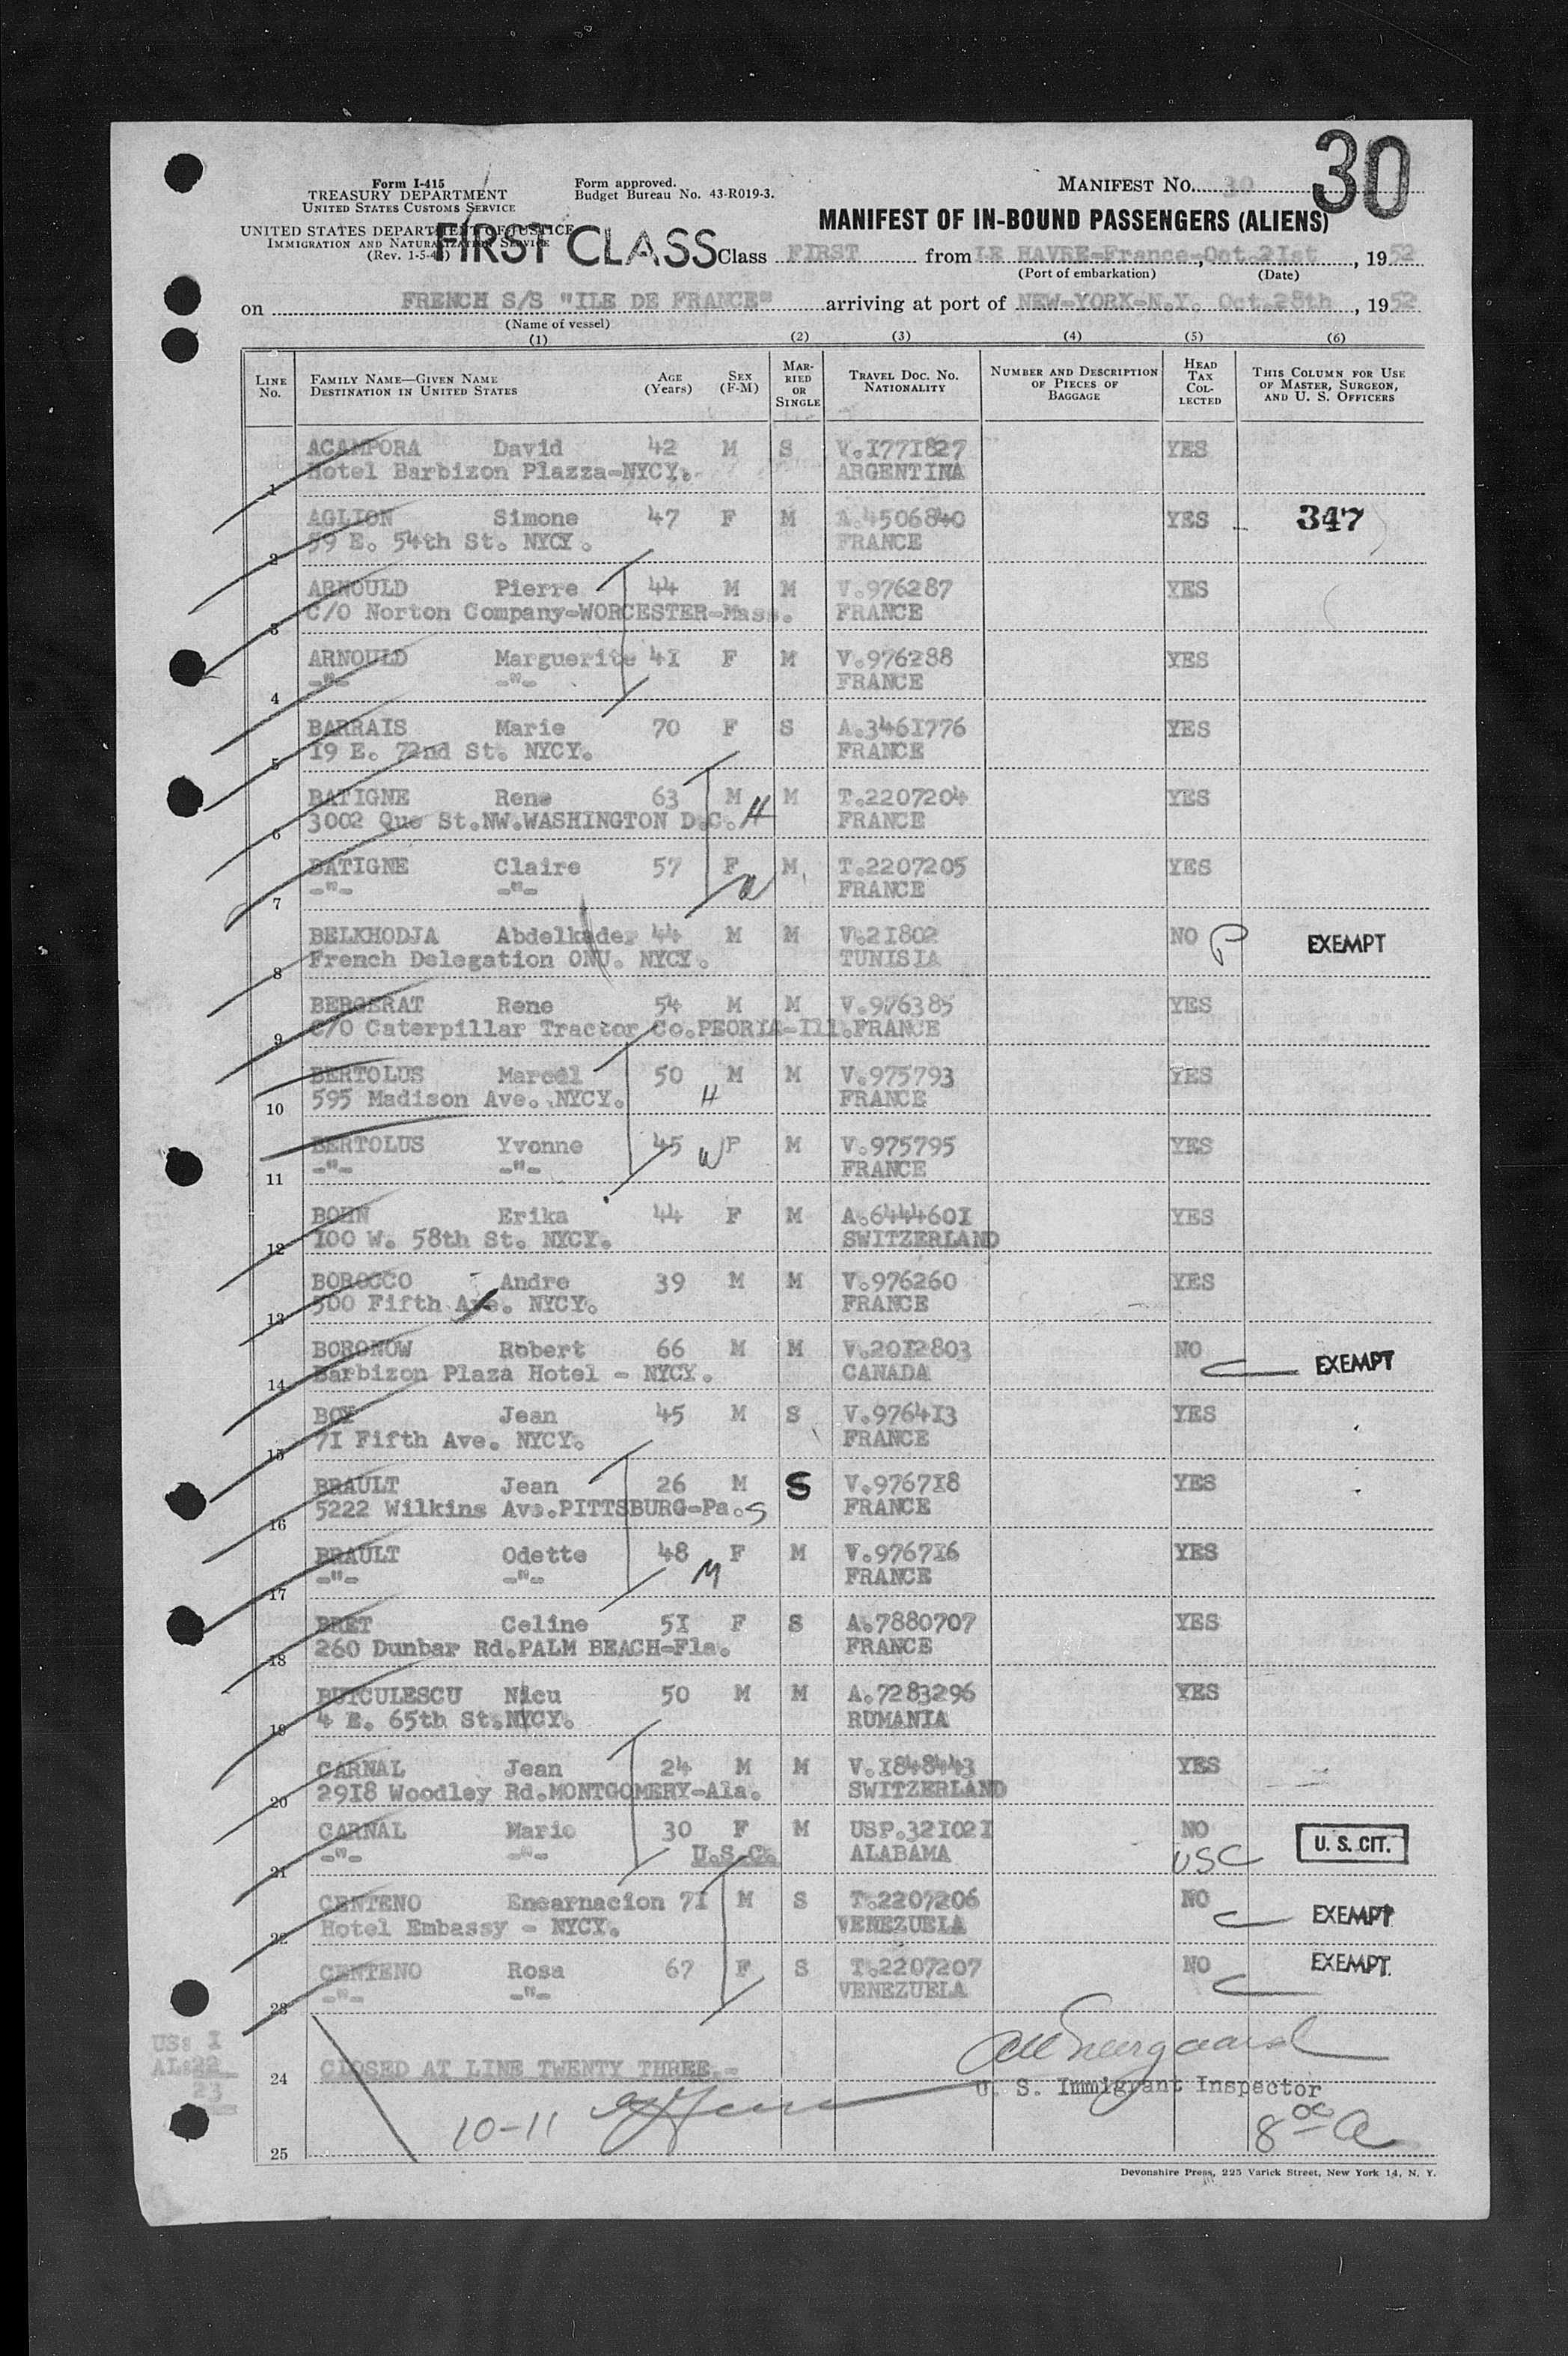 30
Form I-415
TREASURY DEPARTMENT
UNITED STATES CUSTOMS SERVICE
UNITED STATES DEPARTMENT OF JUSTICE
IMMIGRATION AND NATURALIZATION SERVICE
Form approved.
Budget Bureau No. 43-R019-3.
MANIFEST NO. 30
MANIFEST OF IN-BOUND PASSENGERS (ALIENS)
FIRST CLASS
Class FIRST from LE HAVRE-France-Oct.21st, 1952
(Port of embarkation) (Date)
on FRENCH S/S "ILE DE FRANCE" arriving at port of NEW-YORK-N.Y. Oct.28th, 1952
(Name of vessel)
(1) (2) (3) (4) (5) (6)
LINE No. FAMILY NAME—GIVEN NAME DESTINATION IN UNITED STATES AGE (Years) SEX (F-M) MARRIED OR SINGLE TRAVEL DOC. NO. NATIONALITY NUMBER AND DESCRIPTION OF PIECES OF BAGGAGE HEAD TAX COLLECTED THIS COLUMN FOR USE OF MASTER, SURGEON, AND U. S. OFFICERS
ACAMPORA David 42 M S V.1771827 YES
1 Hotel Barbizon Plazza-NYCY. ARGENTINA
AGLION Simone 47 F M A.4506840 YES 347
2 59 E. 54th St. NYCY. FRANCE
ARNOULD Pierre 44 M M V.976287 YES
3 C/O Norton Company-WORCESTER-Mass. FRANCE
ARNOULD Marguerite 41 F M V.976288 YES
4 -"- -"- FRANCE
BARRAIS Marie 70 F S A.3461776 YES
5 19 E. 72nd St. NYCY. FRANCE
BATIGNE Rene 63 M M T.2207204 YES
6 3002 Que St.NW.WASHINGTON D.C. H FRANCE
BATIGNE Claire 57 F M T.2207205 YES
7 -"- -"- W FRANCE
BELKHODJA Abdelkader 44 M M V.21802 NO P EXEMPT
8 French Delegation ONU. NYCY. TUNISIA
BERGERAT Rene 54 M M V.976385 YES
9 C/O Caterpillar Tractor Co.PEORIA-Ill.FRANCE
BERTOLUS Marcel 50 M M V.975793 YES
10 595 Madison Ave. NYCY. H FRANCE
BERTOLUS Yvonne 45 W F M V.975795 YES
11 -"- -"- FRANCE
BOHN Erika 44 F M A.6444601 YES
12 100 W. 58th St. NYCY. SWITZERLAND
BOROCCO Andre 39 M M V.976260 YES
13 500 Fifth Ave. NYCY. FRANCE
BORONOW Robert 66 M M V.2012803 NO EXEMPT
14 Barbizon Plaza Hotel - NYCY. CANADA
BOY Jean 45 M S V.976413 YES
15 71 Fifth Ave. NYCY. FRANCE
BRAULT Jean 26 M S V.976718 YES
16 5222 Wilkins Ave.PITTSBURG-Pa. S FRANCE
BRAULT Odette 48 F M V.976716 YES
17 -"- -"- M FRANCE
BRET Celine 51 F S A.7880707 YES
18 260 Dunbar Rd.PALM BEACH-Fla. FRANCE
BUTCULESCU Nicu 50 M M A.7283296 YES
19 4 E. 65th St.NYCY. RUMANIA
CARNAL Jean 24 M M V.1848443 YES
20 2918 Woodley Rd.MONTGOMERY-Ala. SWITZERLAND
CARNAL Marie 30 F M USP.321021 NO U. S. CIT.
21 -"- -"- U.S.C. ALABAMA USC
CENTENO Encarnacion 71 M S T.2207206 NO EXEMPT
22 Hotel Embassy - NYCY. VENEZUELA
CENTENO Rosa 67 F S T.2207207 NO EXEMPT
23 -"- -"- VENEZUELA
US: 1
AL:22
23
24 CLOSED AT LINE TWENTY THREE.-
U. S. Immigrant Inspector
10-11
8 00 A
25
Devonshire Press, 225 Varick Street, New York 14, N. Y.